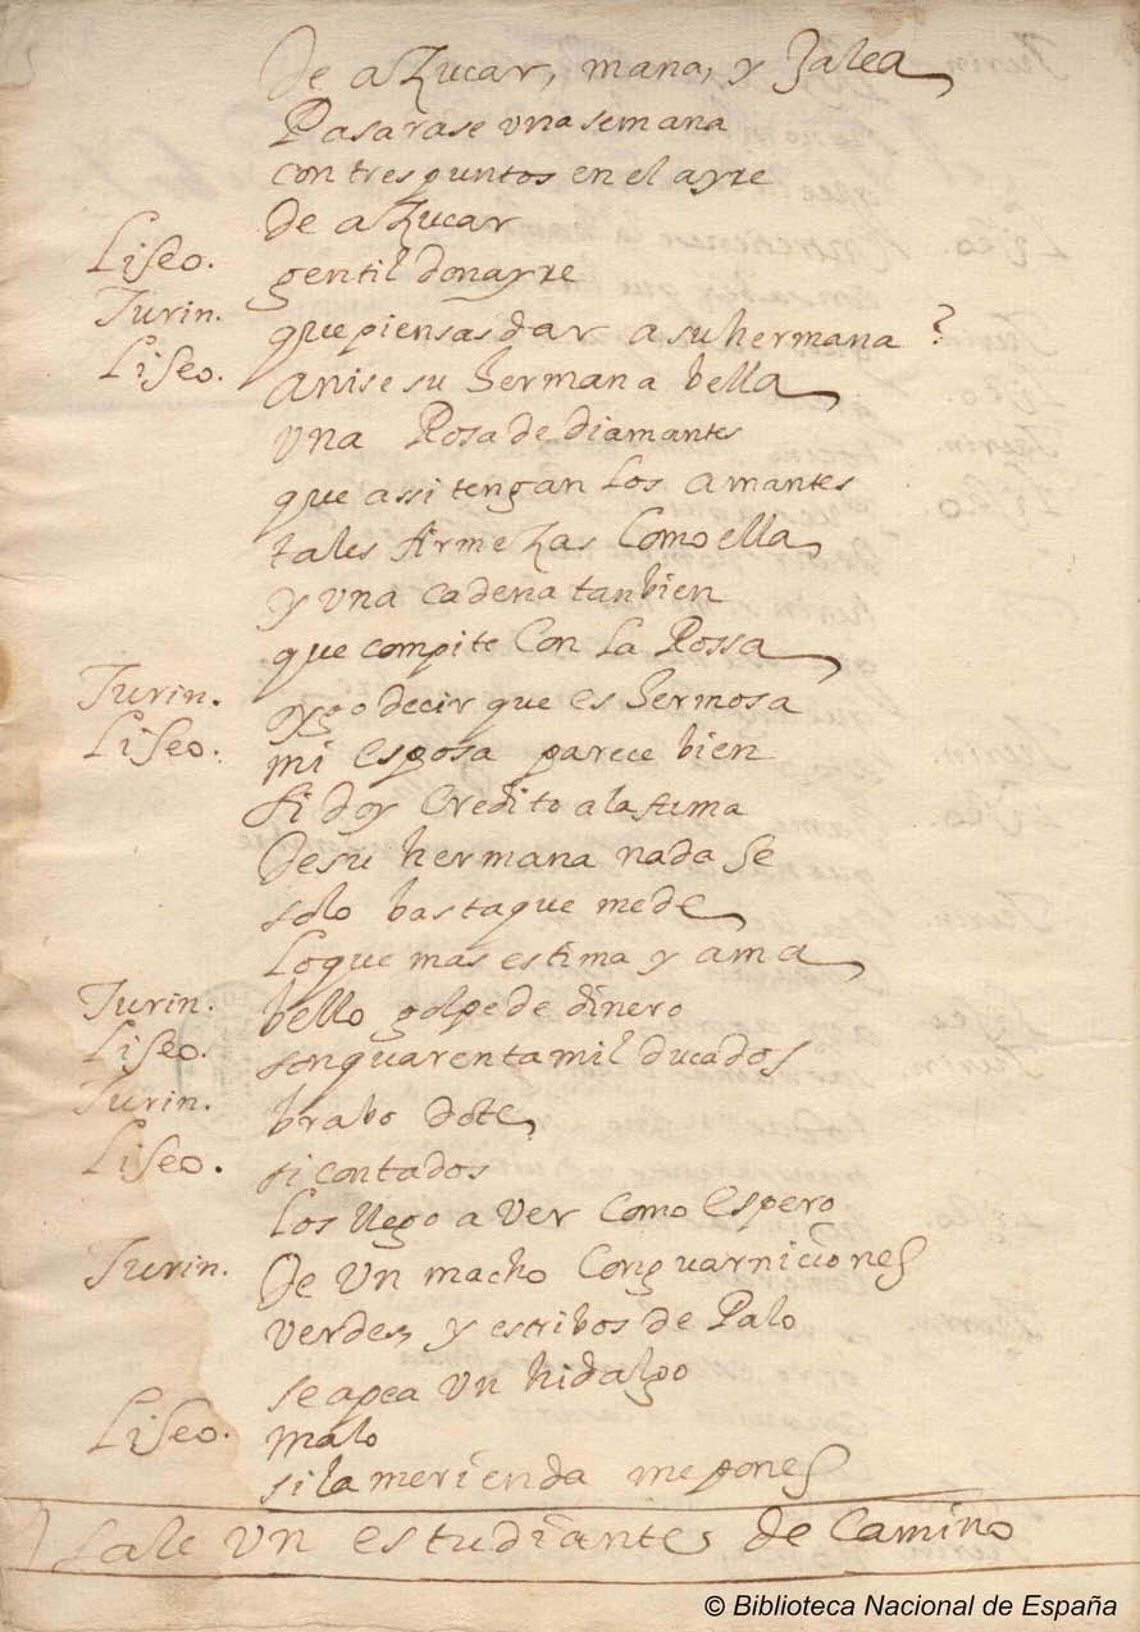 De aZucar, mana, y Jalea
Pasarase una semana
con tres puntos en el ayre
de aZucar
Liseo. gentil donayre
Turin. que piensas dar a su hermana?
Liseo. a nise su hermana bella
una Rosa de diamantes
que assi tengan los amantes
tales firmeZas Como ella
y una cadena tanbien
que compite Con la Rossa
Turin. oygo decir que es hermosa
Liseo. mi esposa parece bien
si doy Credito a la fama
De su hermana nada se
solo basta que me de
lo que mas estima y ama
Turin. bello golpe de dinero
Liseo. son quarenta mil ducados
Turin. brabo dote
Liseo. si contados
los llego a ver Como Espero
Turin. De un macho Con guarniciones
verdes y estribos de Palo
se apea un hidalgo
Liseo. malo
si la merienda me pones
Sale un estudiantes de Camino
© Biblioteca Nacional de España